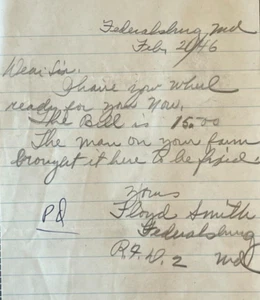 Federalsburg, Md
Feb, 2/46
Dear Sir.
I have you wheel
ready for you Now.
The Bill is 15.00
The man on your farm
brought it here to be fixed.
Yours
Floyd Smith
Federalsburg
PD
R.F.D. 2 Md